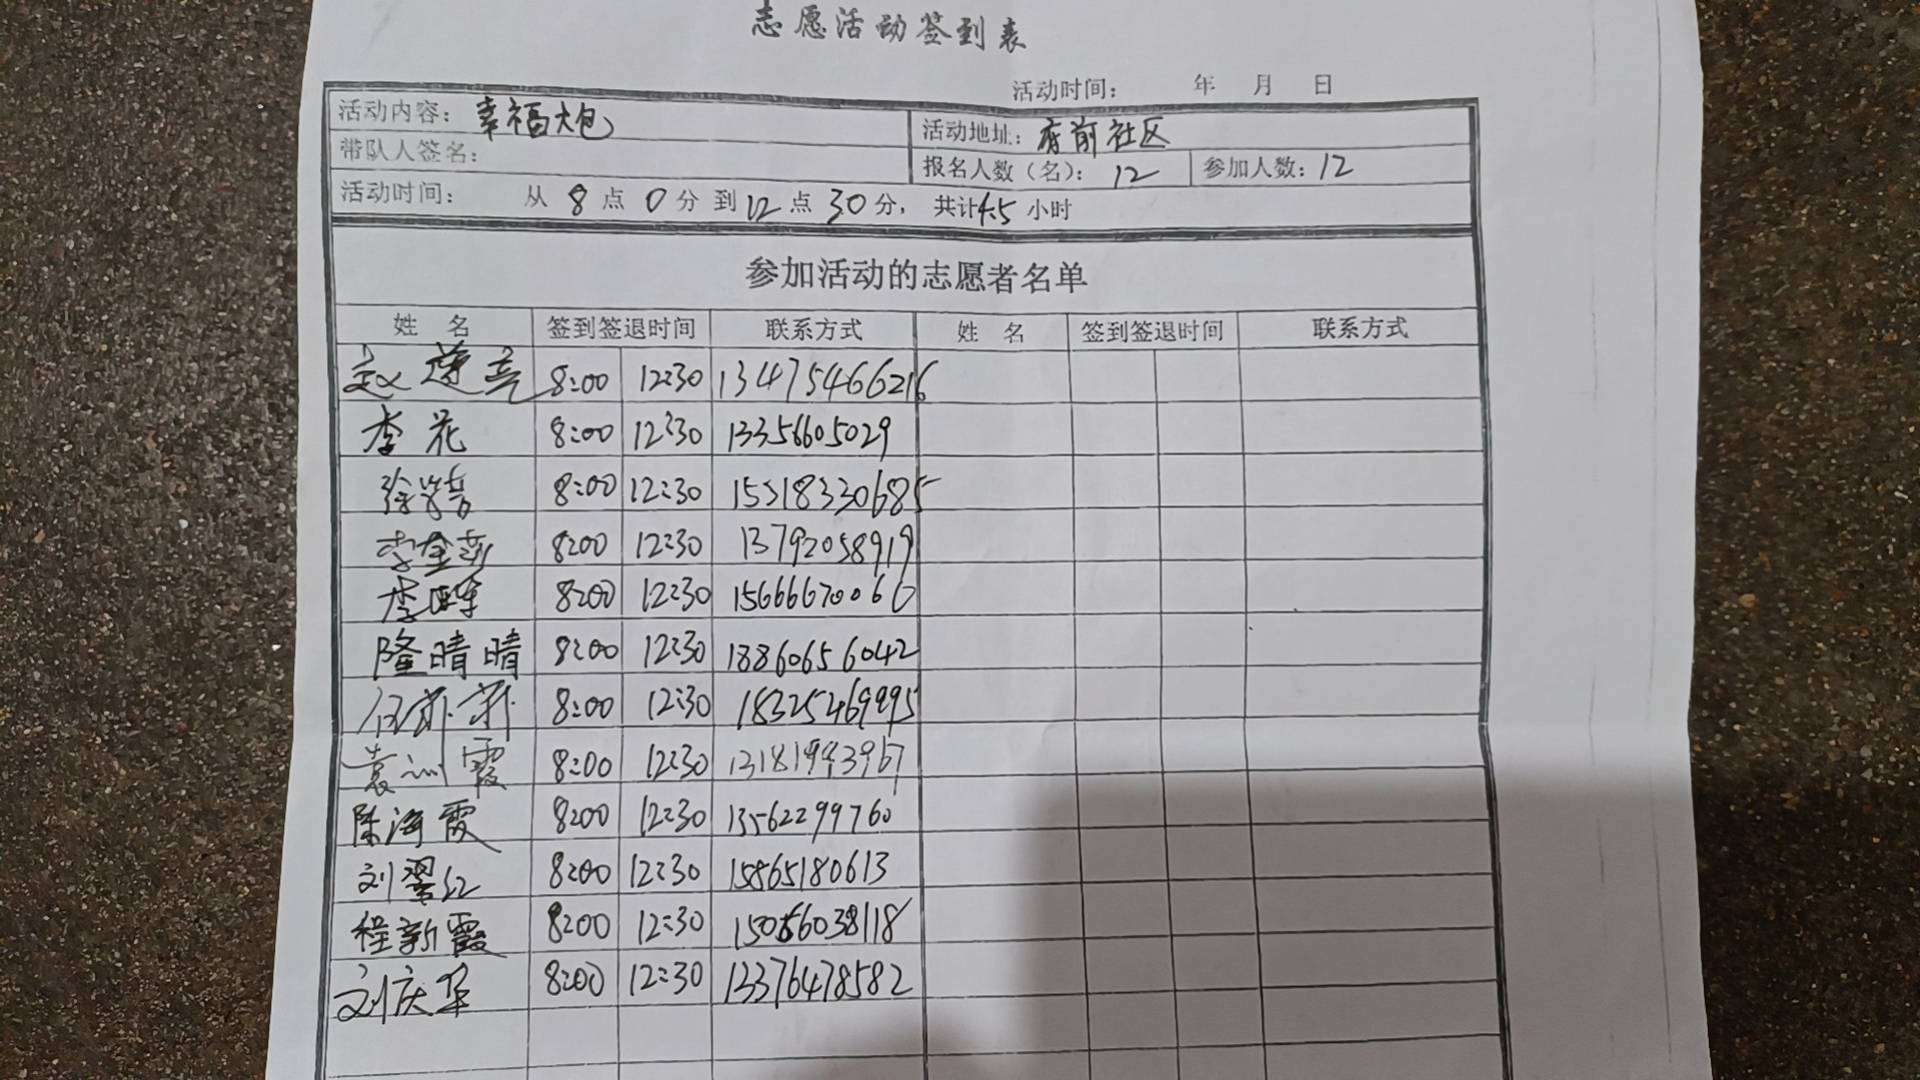 志愿活动签到表
活动时间： 年 月 日
活动内容：幸福大包 活动地址：府前社区
带队人签名： 报名人数（名）：12 参加人数：12
活动时间： 从 8 点 0 分 到 12 点 30 分， 共计 4.5 小时
参加活动的志愿者名单
姓 名 签到签退时间 联系方式 姓 名 签到签退时间 联系方式
赵莲亮 8:00 12:30 13475466216
李花 8:00 12:30 13356605029
徐 8:00 12:30 15318330685
李金莎 8:00 12:30 13792058919
李 8:00 12:30 15666670066
隆晴晴 8:00 12:30 18860656042
8:00 12:30 18325469995
袁训霞 8:00 12:30 13181993967
陈海霞 8:00 12:30 13562299760
刘翠红 8:00 12:30 15865180613
程新霞 8:00 12:30
刘庆华 8:00 12:30 13376478582